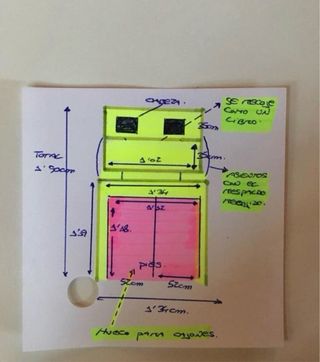 CABEZA.
SE RECOGE
COMO UN
LIBRO.
35cm
TOTAL
1'90cm
1'02
35cm
ASIENTOS
CON EL
RESPALDO
RECOGIDO.
1'34
1'12
1'37
1'18.
PIES
52cm
52cm
1'34cm
HUECO PARA COJINES.